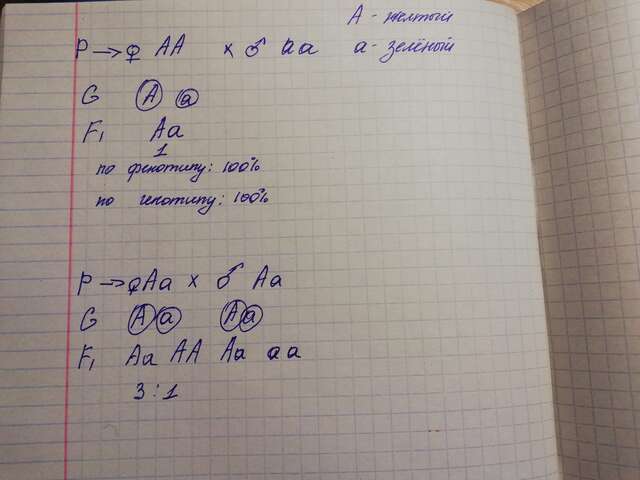 A - желтый
P → ♀ AA x ♂ aa
a - зелёный
G A a
F₁ Aa
1
по фенотипу: 100%
по генотипу: 100%
P → ♀Aa x ♂ Aa
G A a A a
F₁ Aa AA Aa aa
3 : 1